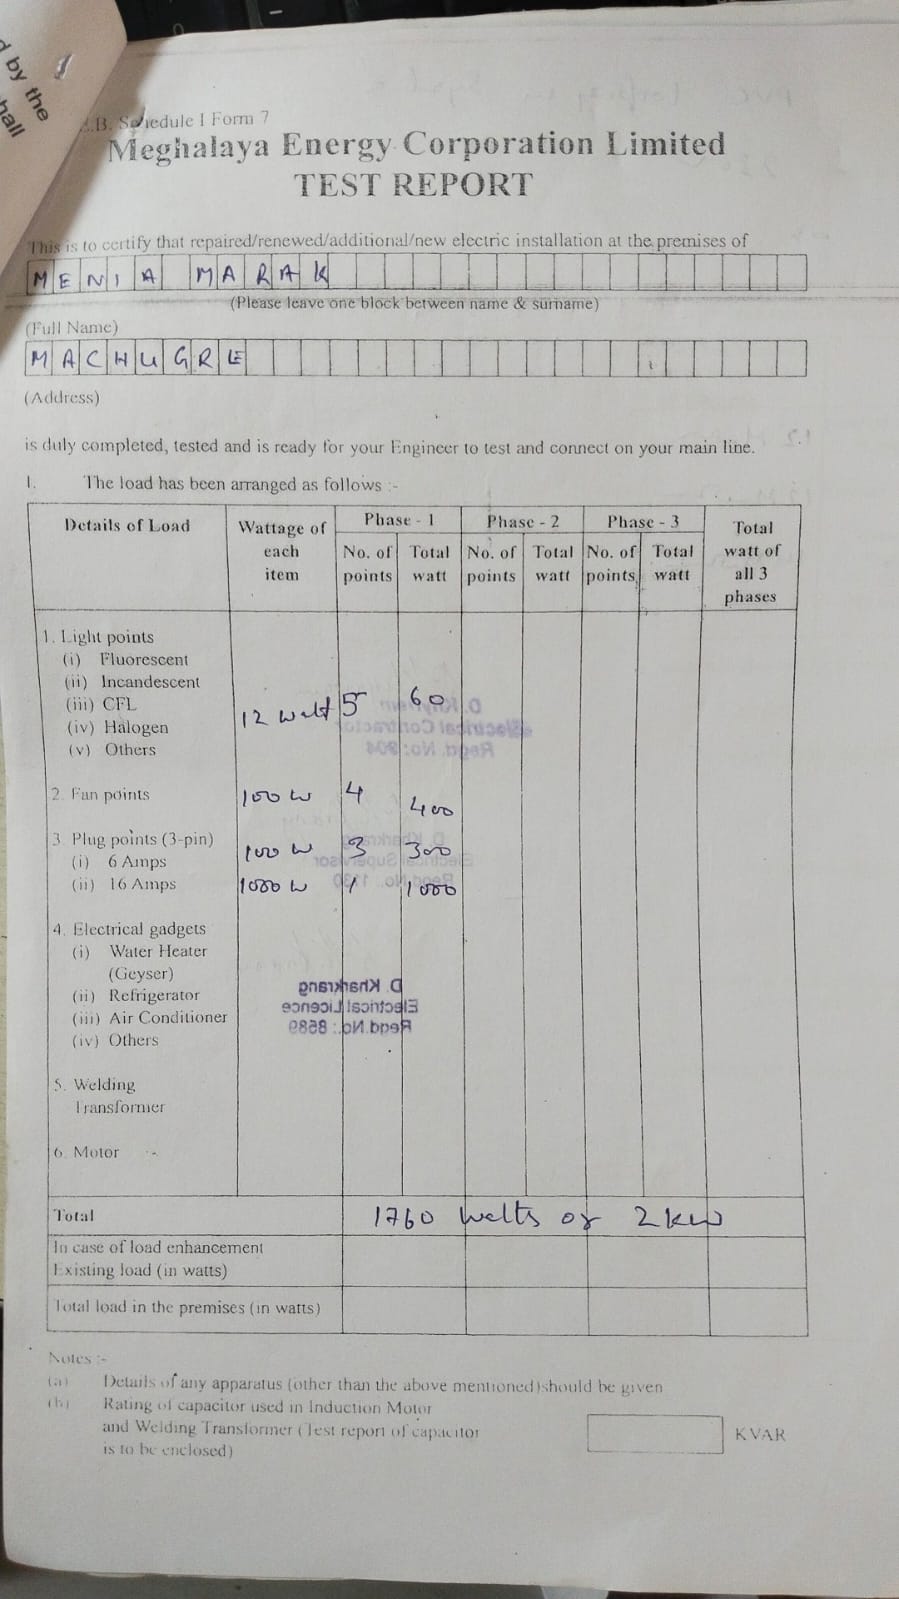 d by the
hall
.B. Schedule I Form 7
Meghalaya Energy Corporation Limited
TEST REPORT
This is to certify that repaired/renewed/additional/new electric installation at the premises of
MENIA MARAK
(Please leave one block between name & surname)
(Full Name)
MACHUGRE
(Address)
is duly completed, tested and is ready for your Engineer to test and connect on your main line.
1. The load has been arranged as follows :-
Details of Load Wattage of each item Phase - 1 Phase - 2 Phase - 3 Total watt of all 3 phases
No. of points Total watt No. of points Total watt No. of points Total watt
1. Light points
(i) Fluorescent
(ii) Incandescent
(iii) CFL
12 watt 5 60
(iv) Halogen
(v) Others
2. Fan points 100 W 4 400
3. Plug points (3-pin)
(i) 6 Amps 100 W 3 300
(ii) 16 Amps 1000 W 1 1000
4. Electrical gadgets
(i) Water Heater
(Geyser)
(ii) Refrigerator
(iii) Air Conditioner
(iv) Others
D. Kharkrang
Electrical Licence
Regd.No.: 8689
5. Welding
Transformer
6. Motor
Total 1760 Watts or 2 kW
In case of load enhancement
Existing load (in watts)
Total load in the premises (in watts)
Notes :-
(a) Details of any apparatus (other than the above mentioned)should be given
(b) Rating of capacitor used in Induction Motor
and Welding Transformer (Test report of capacitor
is to be enclosed)
KVAR